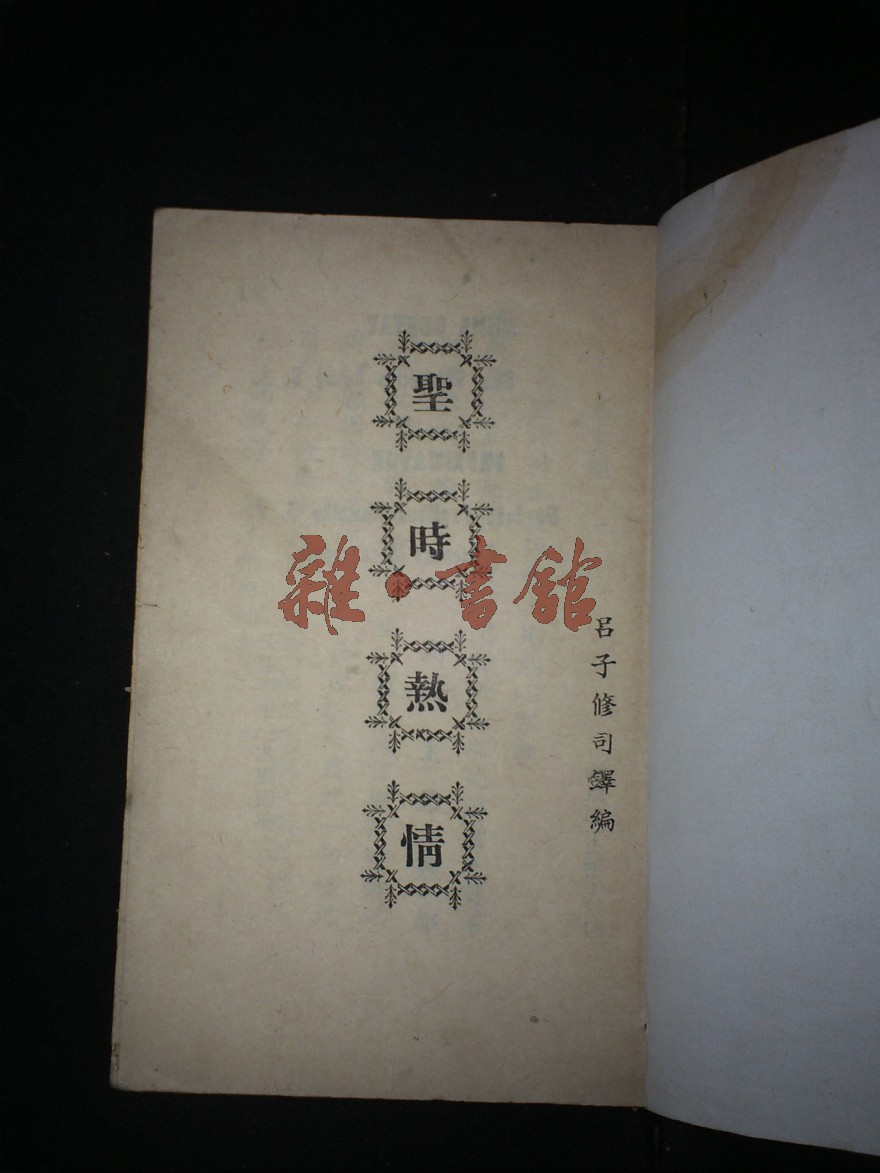 呂子修司鐸編
聖時熱情
雜·書館